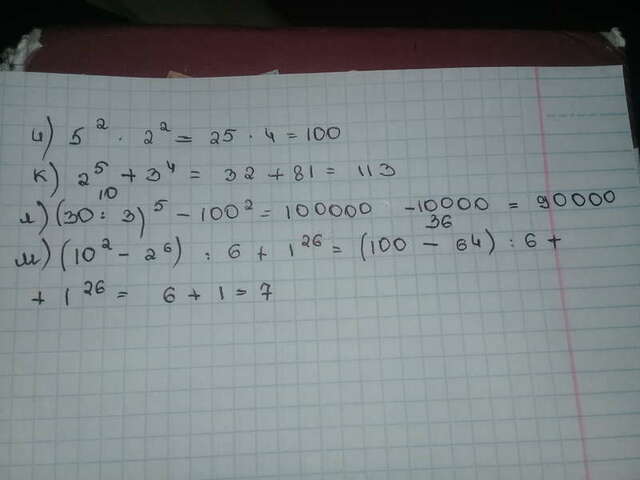 и) 5² · 2² = 25 · 4 = 100
к) 2⁵ + 3⁴ = 32 + 81 = 113
10
л) (30 : 3)⁵ - 100² = 100000 - 10000 = 90000
36
м) (10² - 2⁶) : 6 + 1²⁶ = (100 - 64) : 6 +
+ 1²⁶ = 6 + 1 = 7